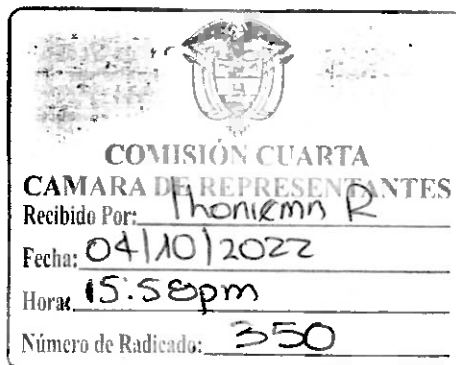 COMISIÓN CUARTA
CAMARA DE REPRESENTANTES
Recibido Por: R
Fecha: 04/10/2022
Hora: 15:58pm
Número de Radicado: 350